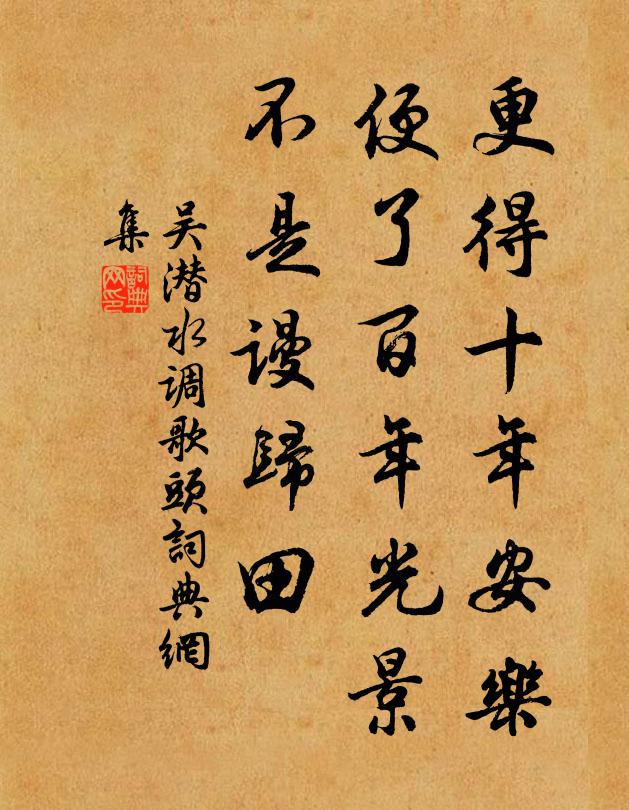 更得十年安樂
便了百年光景
不是謾歸田
吴潜水调歌頭詞典網
集
詞典
网印